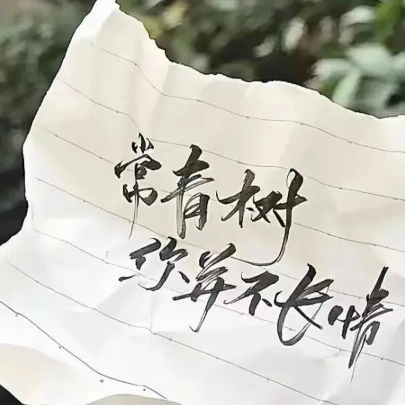 常青树
你并不长情